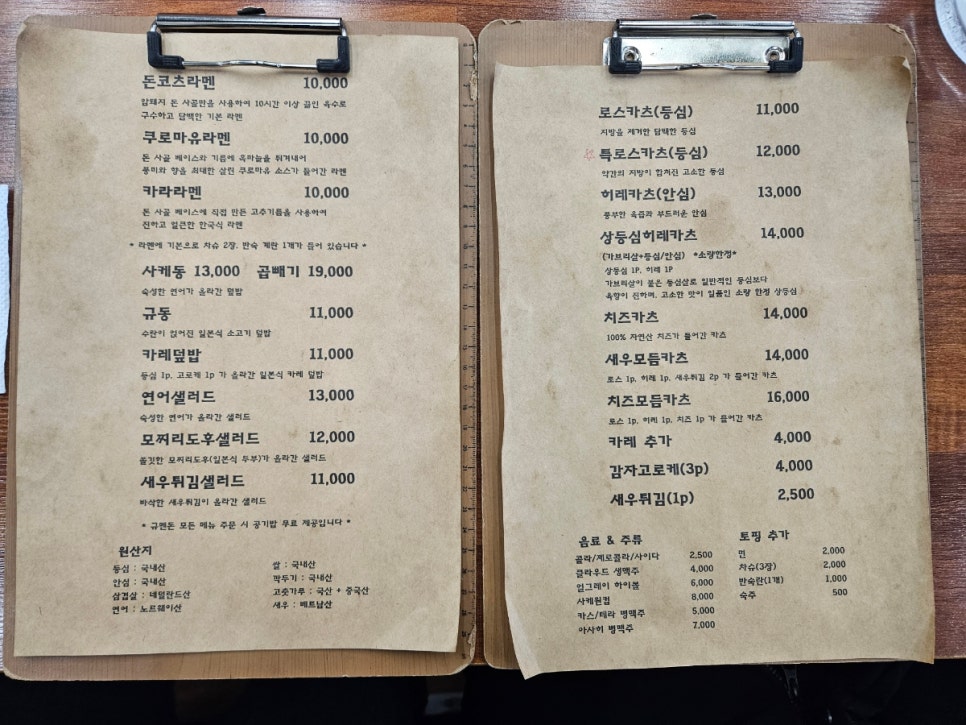 돈코츠라멘 10,000
암돼지 돈 사골만을 사용하여 10시간 이상 끓인 육수로
구수하고 담백한 기본 라멘
쿠로마유라멘 10,000
돈 사골 베이스와 기름에 흑마늘을 튀겨내어
풍미와 향을 최대한 살린 쿠로마유 소스가 들어간 라멘
카라라멘 10,000
돈 사골 베이스에 직접 만든 고추기름을 사용하여
진하고 얼큰한 한국식 라멘
* 라멘에 기본으로 차슈 2장, 반숙 계란 1개가 들어 있습니다 *
사케동 13,000 곱빼기 19,000
숙성한 연어가 올라간 덮밥
규동 11,000
수란이 얹어진 일본식 소고기 덮밥
카레덮밥 11,000
등심 1p, 고로케 1p 가 올라간 일본식 카레 덮밥
연어샐러드 13,000
숙성한 연어가 올라간 샐러드
모찌리도후샐러드 12,000
쫄깃한 모찌리도후(일본식 두부)가 올라간 샐러드
새우튀김샐러드 11,000
바삭한 새우튀김이 올라간 샐러드
* 규멘돈 모든 메뉴 주문 시 공기밥 무료 제공입니다 *
원산지
등심 : 국내산
안심 : 국내산
삼겹살 : 네덜란드산
연어 : 노르웨이산
쌀 : 국내산
깍두기 : 국내산
고춧가루 : 국산 + 중국산
새우 : 베트남산
로스카츠(등심) 11,000
지방을 제거한 담백한 등심
☆특로스카츠(등심) 12,000
약간의 지방이 합쳐진 고소한 등심
히레카츠(안심) 13,000
풍부한 육즙과 부드러운 안심
상등심히레카츠 14,000
(가브리살+등심/안심) *소량한정*
상등심 1P, 히레 1P
가브리살이 붙은 등심살로 일반적인 등심보다
육향이 진하며, 고소한 맛이 일품인 소량 한정 상등심
치즈카츠 14,000
100% 자연산 치즈가 들어간 카츠
새우모듬카츠 14,000
로스 1p, 히레 1p, 새우튀김 2p 가 들어간 카츠
치즈모듬카츠 16,000
로스 1p, 히레 1p, 치즈 1p 가 들어간 카츠
카레 추가 4,000
감자고로케(3p) 4,000
새우튀김(1p) 2,500
음료 & 주류
콜라/제로콜라/사이다 2,500
클라우드 생맥주 4,000
얼그레이 하이볼 6,000
사케원컵 8,000
카스/테라 병맥주 5,000
아사히 병맥주 7,000
토핑 추가
면 2,000
차슈(3장) 2,000
반숙란(1개) 1,000
숙주 500